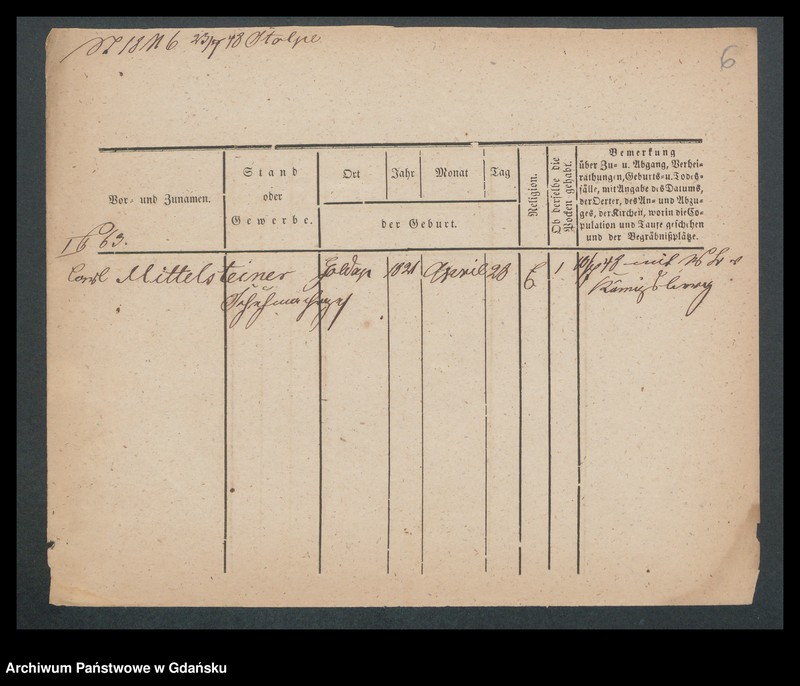 18 N 6 23/7 43 Stolpe
6
Vor- und Zunamen.
Stand
oder
Gewerbe.
Ort
Jahr
Monat
Tag
der Geburt.
Religion.
Ob derselbe die
Pocken gehabt.
Bemerkung
über Zu- u. Abgang, Verhei-
rathungen, Geburts- u. Todes-
fälle, mit Angabe des Datums,
der Oerter, des An- und Abzu-
ges, der Kirchen, worin die Co-
pulation und Taufe geschehen
und der Begräbnißplätze.
I 6 63.
Carl Mittelsteiner
Goldap 1821 April 23 E 1 43 mit
Königsberg
Archiwum Państwowe w Gdańsku